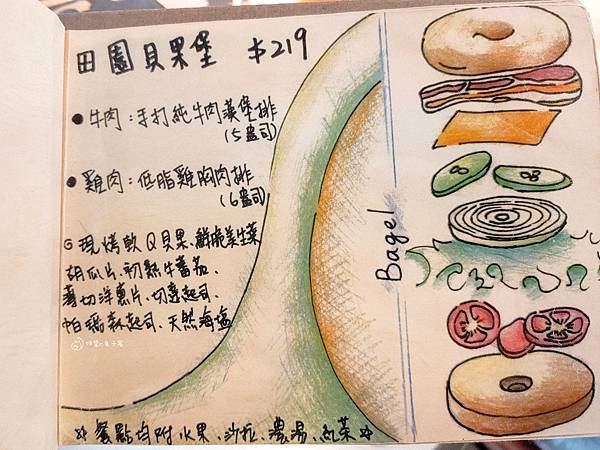 田園貝果堡 $219
●牛肉：手打純牛肉漢堡排
(5盎司)
●雞肉：低脂雞胸肉排
(6盎司)
◎現烤軟Q貝果、鮮脆美生菜
胡瓜片、初熟牛蕃茄、
薄切洋蔥片、切達起司、
帕瑪森起司、天然海塩
Bagel
☆餐點均附水果、沙拉、濃湯、紅茶☆